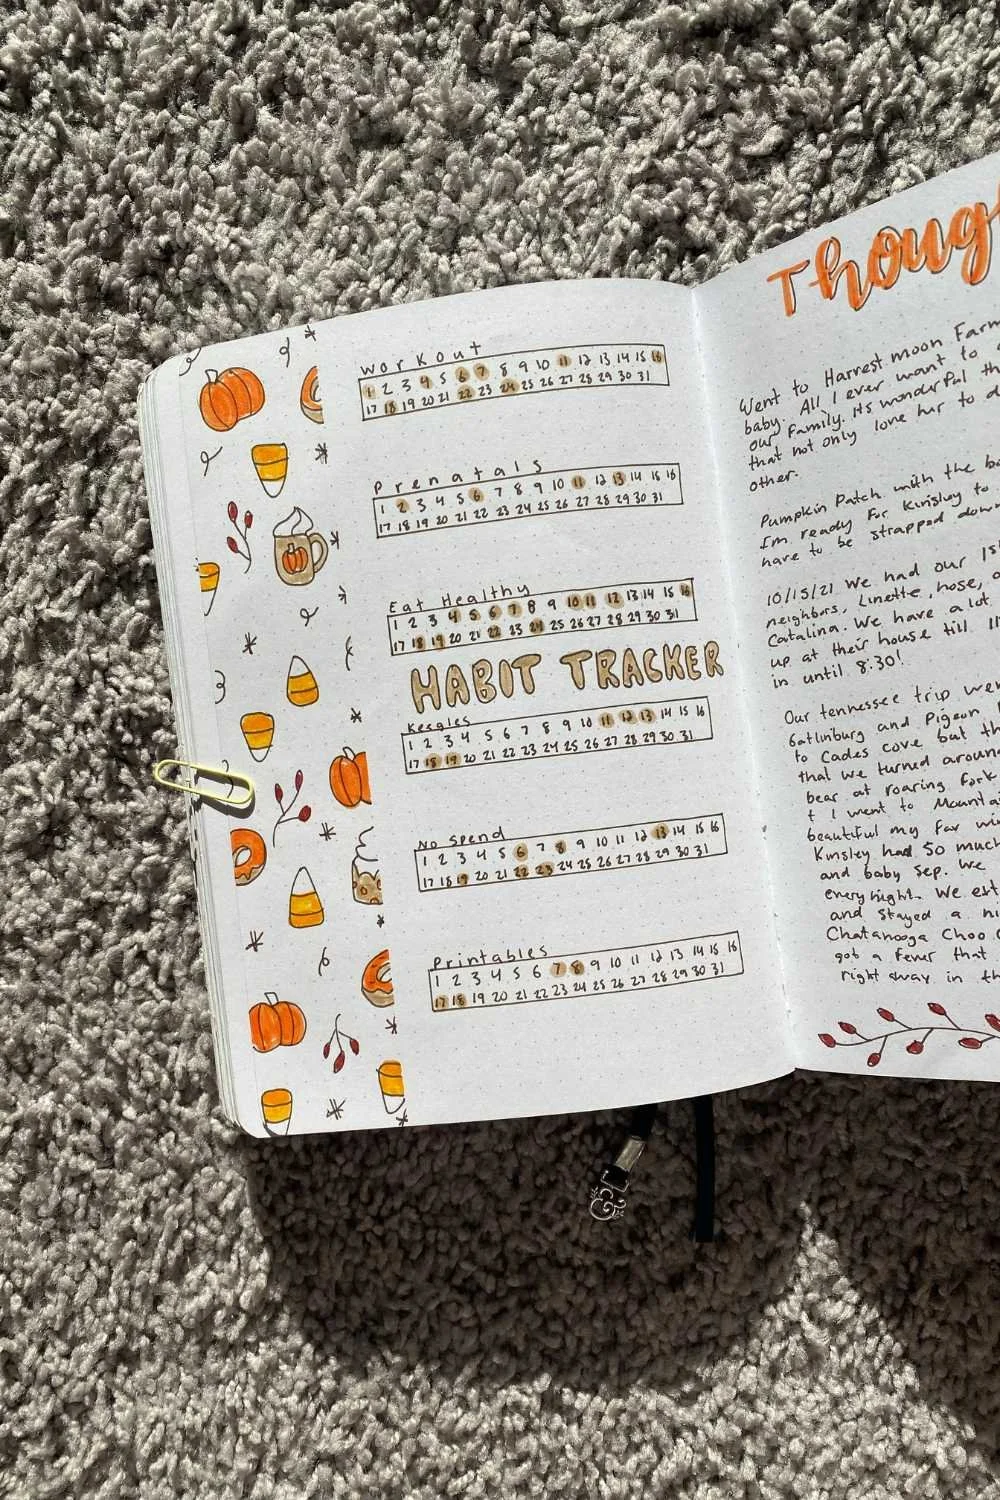 Workout
1 2 3 4 5 6 7 8 9 10 11 12 13 14 15 16
17 18 19 20 21 22 23 24 25 26 27 28 29 30 31
Prenatals
1 2 3 4 5 6 7 8 9 10 11 12 13 14 15 16
17 18 19 20 21 22 23 24 25 26 27 28 29 30 31
Eat Healthy
1 2 3 4 5 6 7 8 9 10 11 12 13 14 15 16
17 18 19 20 21 22 23 24 25 26 27 28 29 30 31
HABIT TRACKER
Keegles
1 2 3 4 5 6 7 8 9 10 11 12 13 14 15 16
17 18 19 20 21 22 23 24 25 26 27 28 29 30 31
No Spend
1 2 3 4 5 6 7 8 9 10 11 12 13 14 15 16
17 18 19 20 21 22 23 24 25 26 27 28 29 30 31
Printables
1 2 3 4 5 6 7 8 9 10 11 12 13 14 15 16
17 18 19 20 21 22 23 24 25 26 27 28 29 30 31
Thoug
Went to Harvest moon Farm
baby. All I ever want to
our family. Its wonderful
that not only love her to
other.
Pumpkin Patch with the
I'm ready for Kinsley to
have to be strapped down
10/15/21 We had our 1st
neighbors, Linette, Jose,
Catalina. We have a lot
up at their house till 11
in until 8:30!
Our tennessee trip
Gatlinburg and Pigeon
to Cades cove but
that we turned around
bear at roaring fork
+ I went to
beautiful my fav
Kinsley had so much
and baby Sep. We
every night. We
and stayed a
Chatanooga Choo
got a fever that
right away in